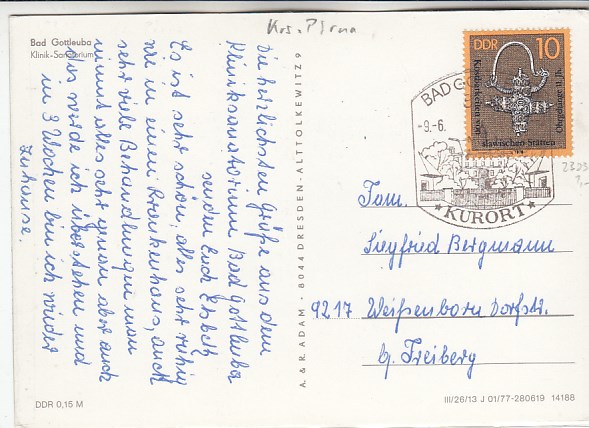 Krs. Pirna
Bad Gottleuba
Klinik-Sanatorium
Die herzlichsten Grüße aus dem
Kliniksanatorium Bad Gottleuba
senden Euch Elsbeth
Es ist sehr schön, alles sehr ruhig
wie in einem Krankenhaus, auch
sehr viele Behandlungen man
nimmt alles sehr genau aber auch
das werde ich überstehen und
in 3 Wochen bin ich wieder
zuhause.
A. & R. ADAM · 8044 DRESDEN-ALTTOLKEWITZ 9
DDR 10
Kostbarkeiten von
slawischen Stätten
Ohrgehänge 11. Jh.
BAD G
-9.-6.
KURORT
Fam.
Siegfried Bergmann
9217 Weißenborn Dorfstr.
b. Freiberg
DDR 0,15 M
III/26/13 J 01/77-280619 14188